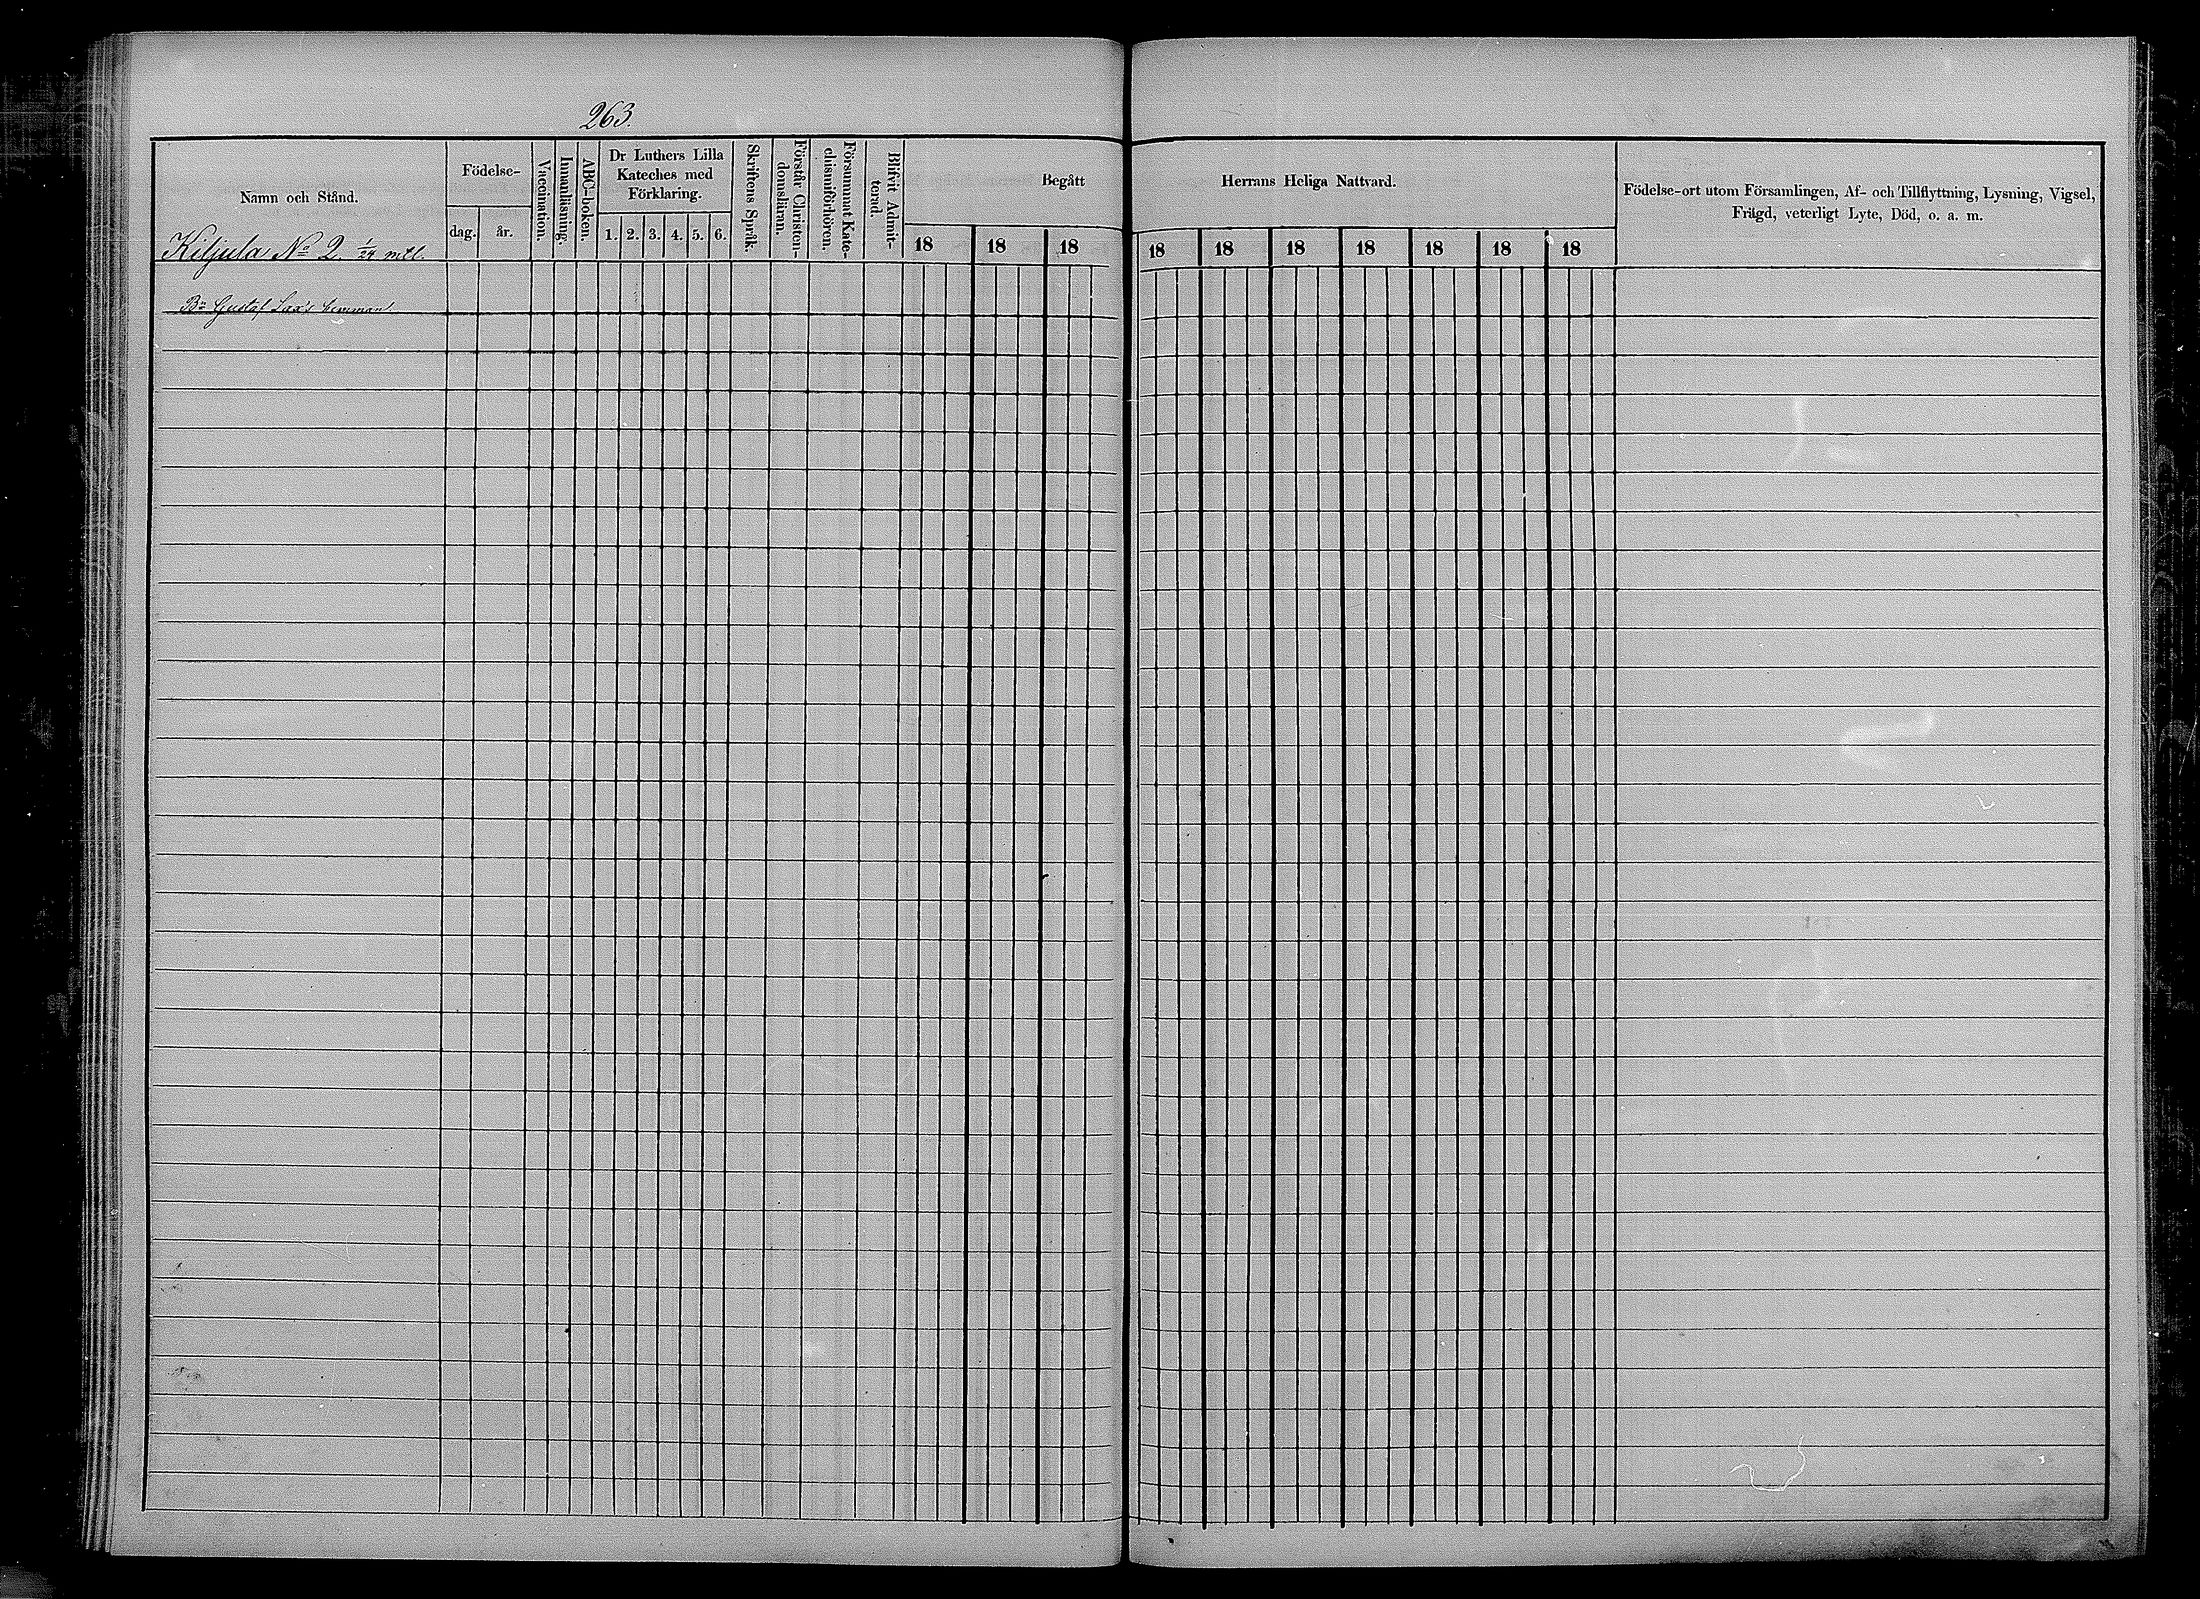 263.
Namn och Stånd.
Födelse-
dag. år.
Vaccination.
Innanläsning.
ABC-boken.
Dr Luthers Lilla
Kateches med
Förklaring.
1. 2. 3. 4. 5. 6.
Skriftens Språk.
Förstår Christen-
domsläran.
Försummat Kate-
chismiförhören.
Blifvit Admit-
terad.
Begått
18 18 18
Herrans Heliga Nattvard.
18 18 18 18 18 18 18
Födelse-ort utom Församlingen, Af- och Tillflyttning, Lysning, Vigsel,
Frägd, veterligt Lyte, Död, o. a. m.
Kiljula No 2. 1/24 mtl.
Bn Gustaf Lax's hemman.